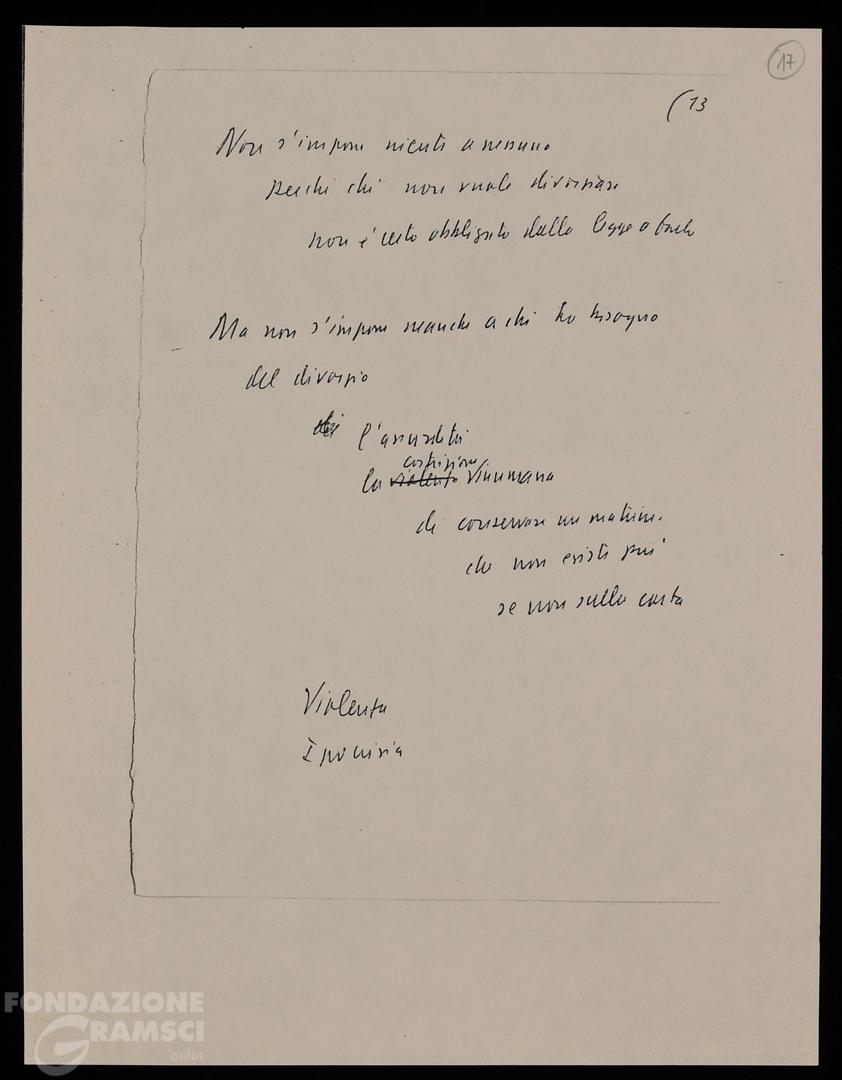 17
(13
Non s'impone niente a nessuno
perchè chi non vuole divorziare
non è certo obbligato dalla legge a farlo
Ma non s'impone neanche a chi ha bisogno
del divorzio
l'assurdità
costrizione
la violenta inumana
di conservare un matrim.
che non esiste più
se non sulla carta
Violenta
Ipocrisia
FONDAZIONE
GRAMSCI
onlus